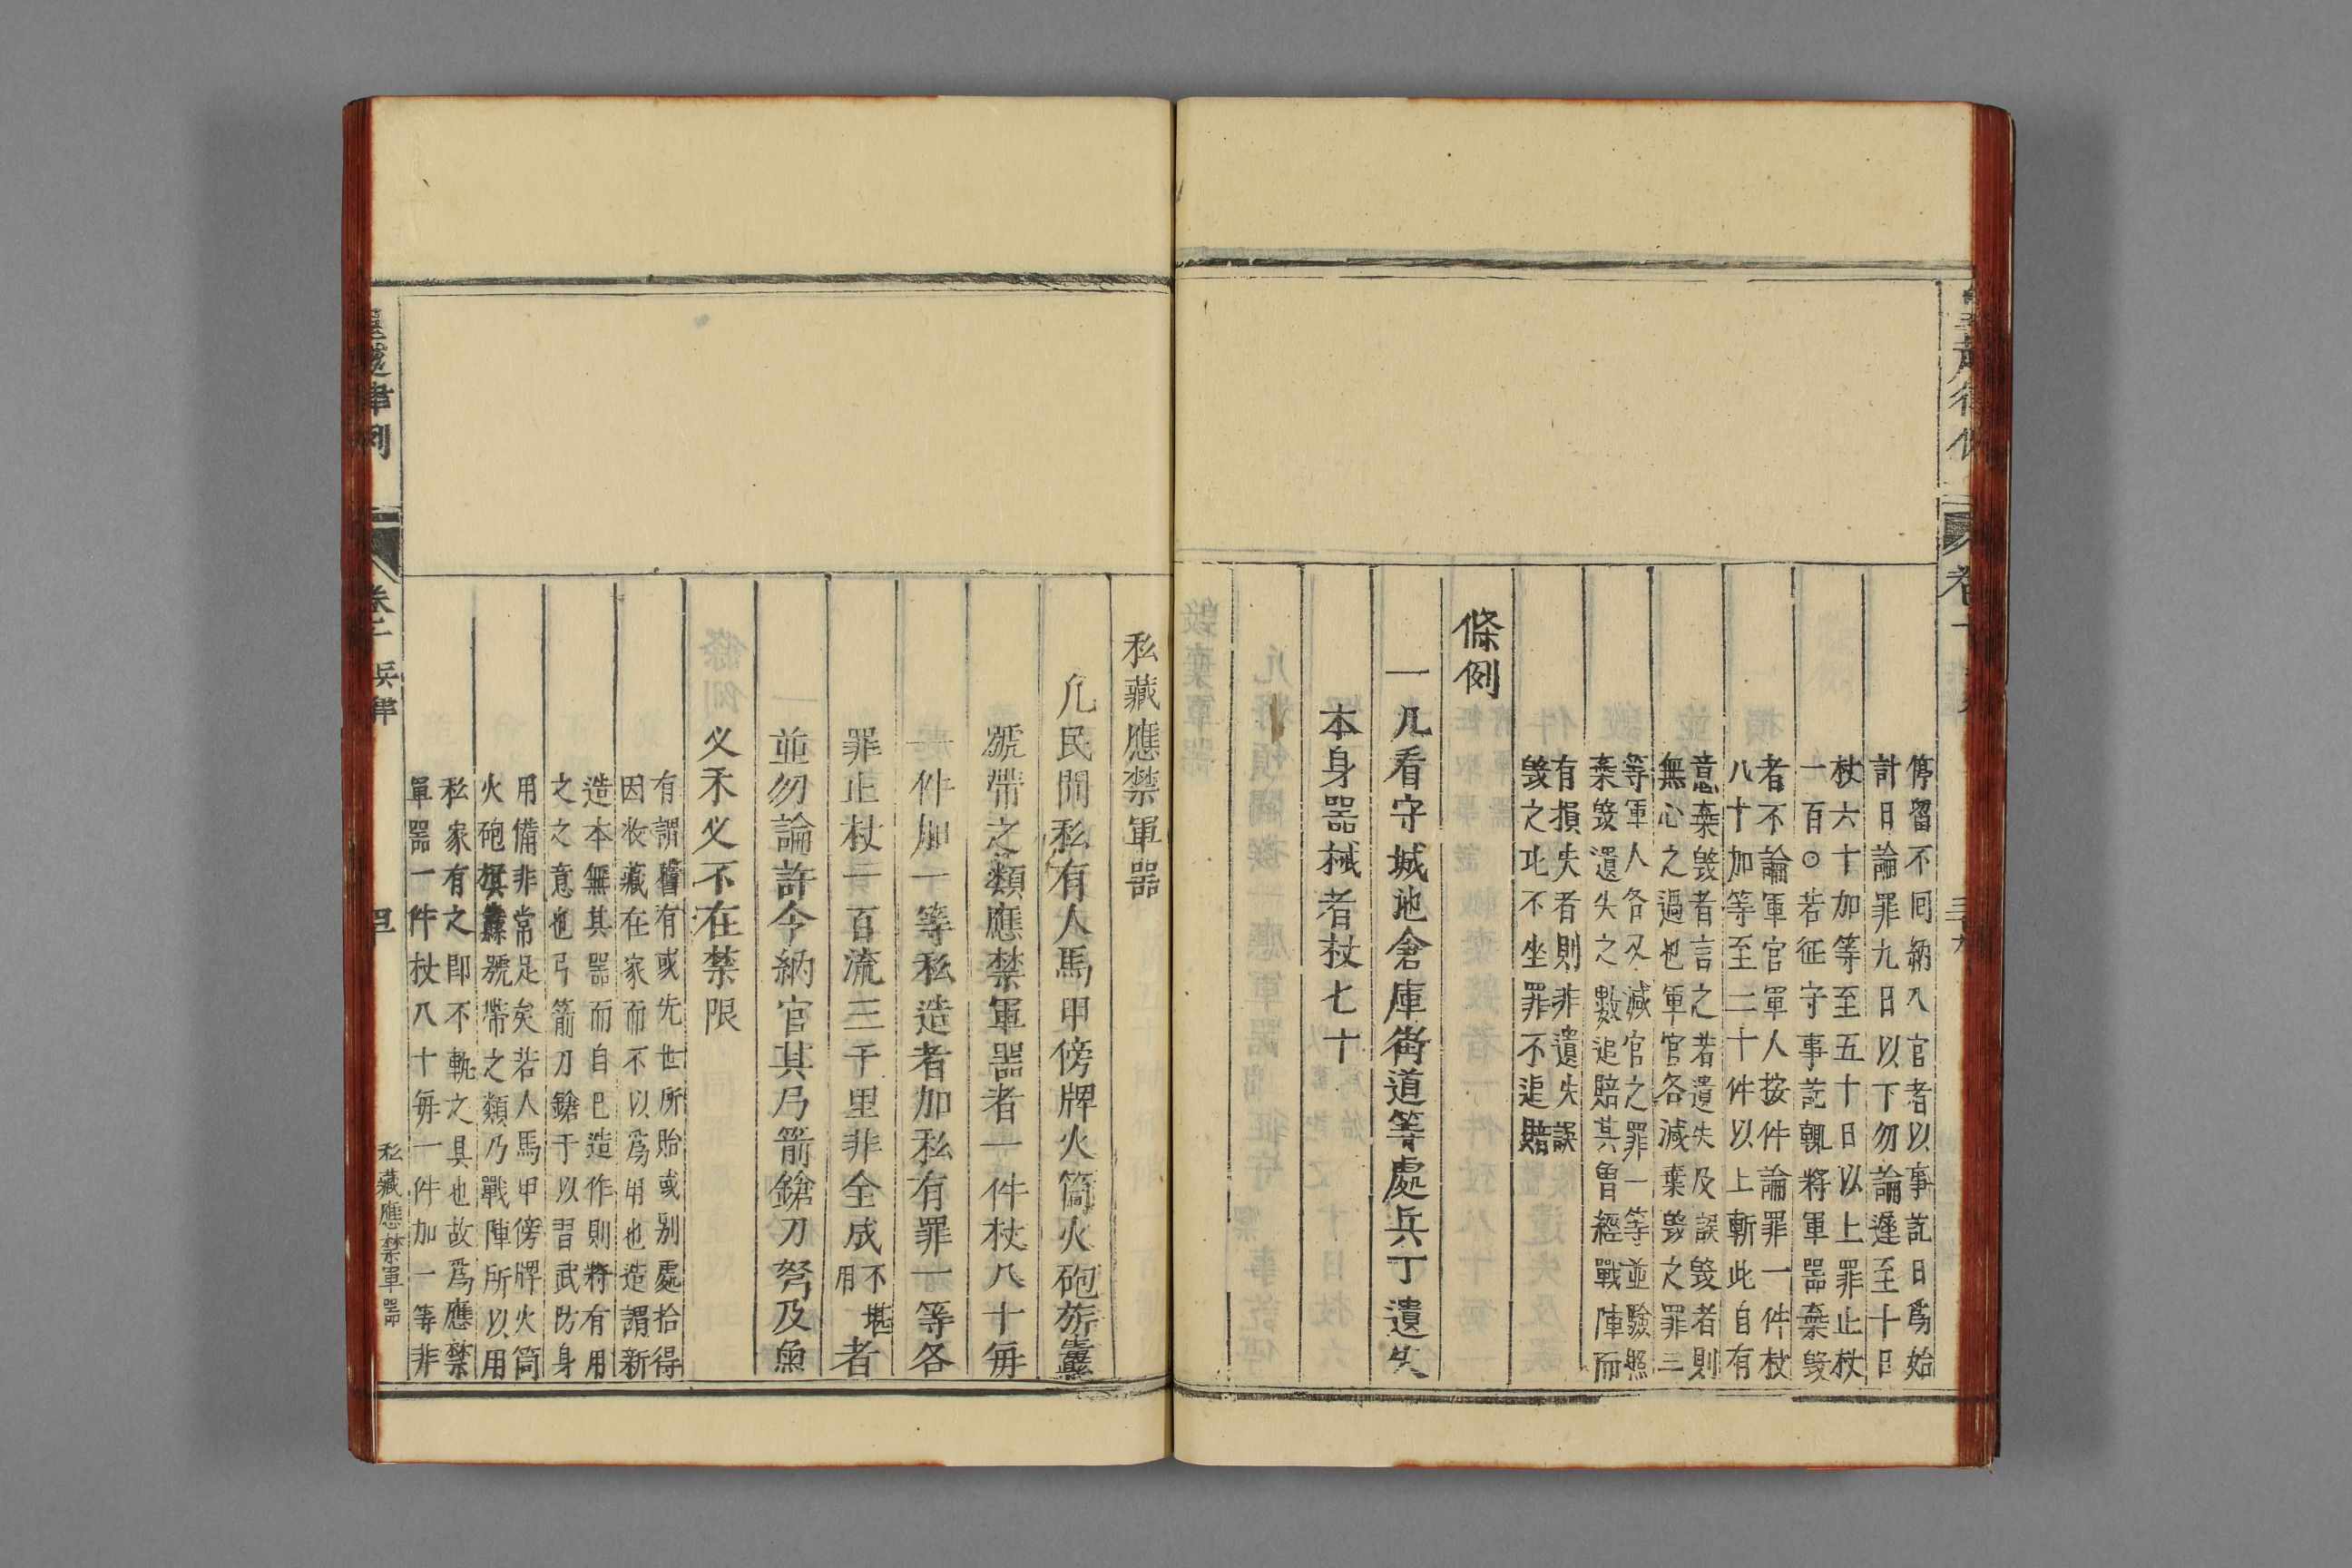 停留不同納入官者以事訖日爲始
計日論罪九日以下勿論遲至十日
杖六十加等至五十日以上罪止杖
一百○若征守事訖輒將軍器棄毀
者不論軍官軍人按件論罪一件杖
八十加等至二十件以上斬此自有
意棄毀者言之若遺失及誤毀者則
無心之過也軍官各減棄毀之罪三
等軍人各又減官之罪一等並驗照
棄毀遺失之數追賠其曾經戰陣而
有損失者則非遺失誤
毀之比不坐罪不追賠
條例
一凡看守城池倉庫街道等處兵丁遺失
本身器械者杖七十
私藏應禁軍器
凡民間私有人馬甲傍牌火筒火砲旂纛
號帶之類應禁軍器者一件杖八十每
一件加一等私造者加私有罪一等各
罪止杖一百流三千里非全成不堪用者
並勿論許令納官其弓箭鎗刀弩及魚
义禾义不在禁限
有謂舊有或先世所貽或别處拾得
因收藏在家而不以爲用也造謂新
造本無其器而自己造作則將有用
之之意也弓箭刀鎗于以習武防身
用備非常足矣若人馬甲傍牌火筒
火砲旗纛號帶之類乃戰陣所以用
私家有之即不軌之具也故爲應禁
軍器一件杖八十每一件加一等非
皇越律例
卷十二 兵律
私藏應禁軍器